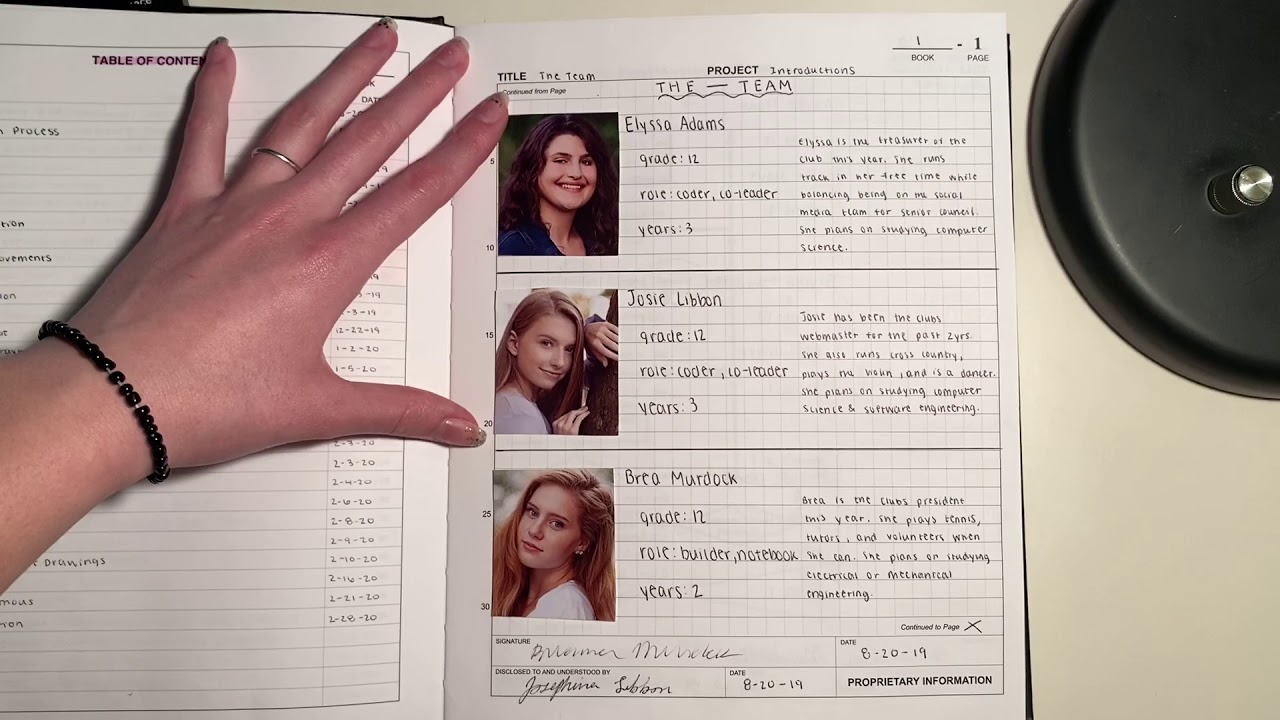 TABLE OF CONTEN
DATE
n Process
tion
ovements
ion
-19
-3-19
12-22-19
1-2-20
1-5-20
2-3-20
2-4-20
2-6-20
2-8-20
2-9-20
Drawings 2-10-20
2-16-20
mous 2-21-20
tion 2-28-20
1 - 1
BOOK PAGE
TITLE The Team PROJECT Introductions
Continued from Page
THE — TEAM
Elyssa Adams
grade: 12
role: coder, co-leader
years: 3
Elyssa is the treasurer of the
club this year. She runs
track in her free time while
balancing being on the social
media team for senior council.
She plans on studying computer
science.
Josie Libbon
grade: 12
role: coder, co-leader
years: 3
Josie has been the clubs
webmaster for the past 2yrs.
She also runs cross country,
plays the violin, and is a dancer.
She plans on studying computer
science & software engineering.
Brea Murdock
grade: 12
role: builder, notebook
years: 2
Brea is the clubs president
this year. She plays tennis,
tutors, and volunteers when
she can. She plans on studying
electrical or mechanical
engineering.
5
10
15
20
25
30
Continued to Page X
SIGNATURE
Brianna Murdock
DATE
8-20-19
DISCLOSED TO AND UNDERSTOOD BY
Josephina Libbon
DATE
8-20-19
PROPRIETARY INFORMATION